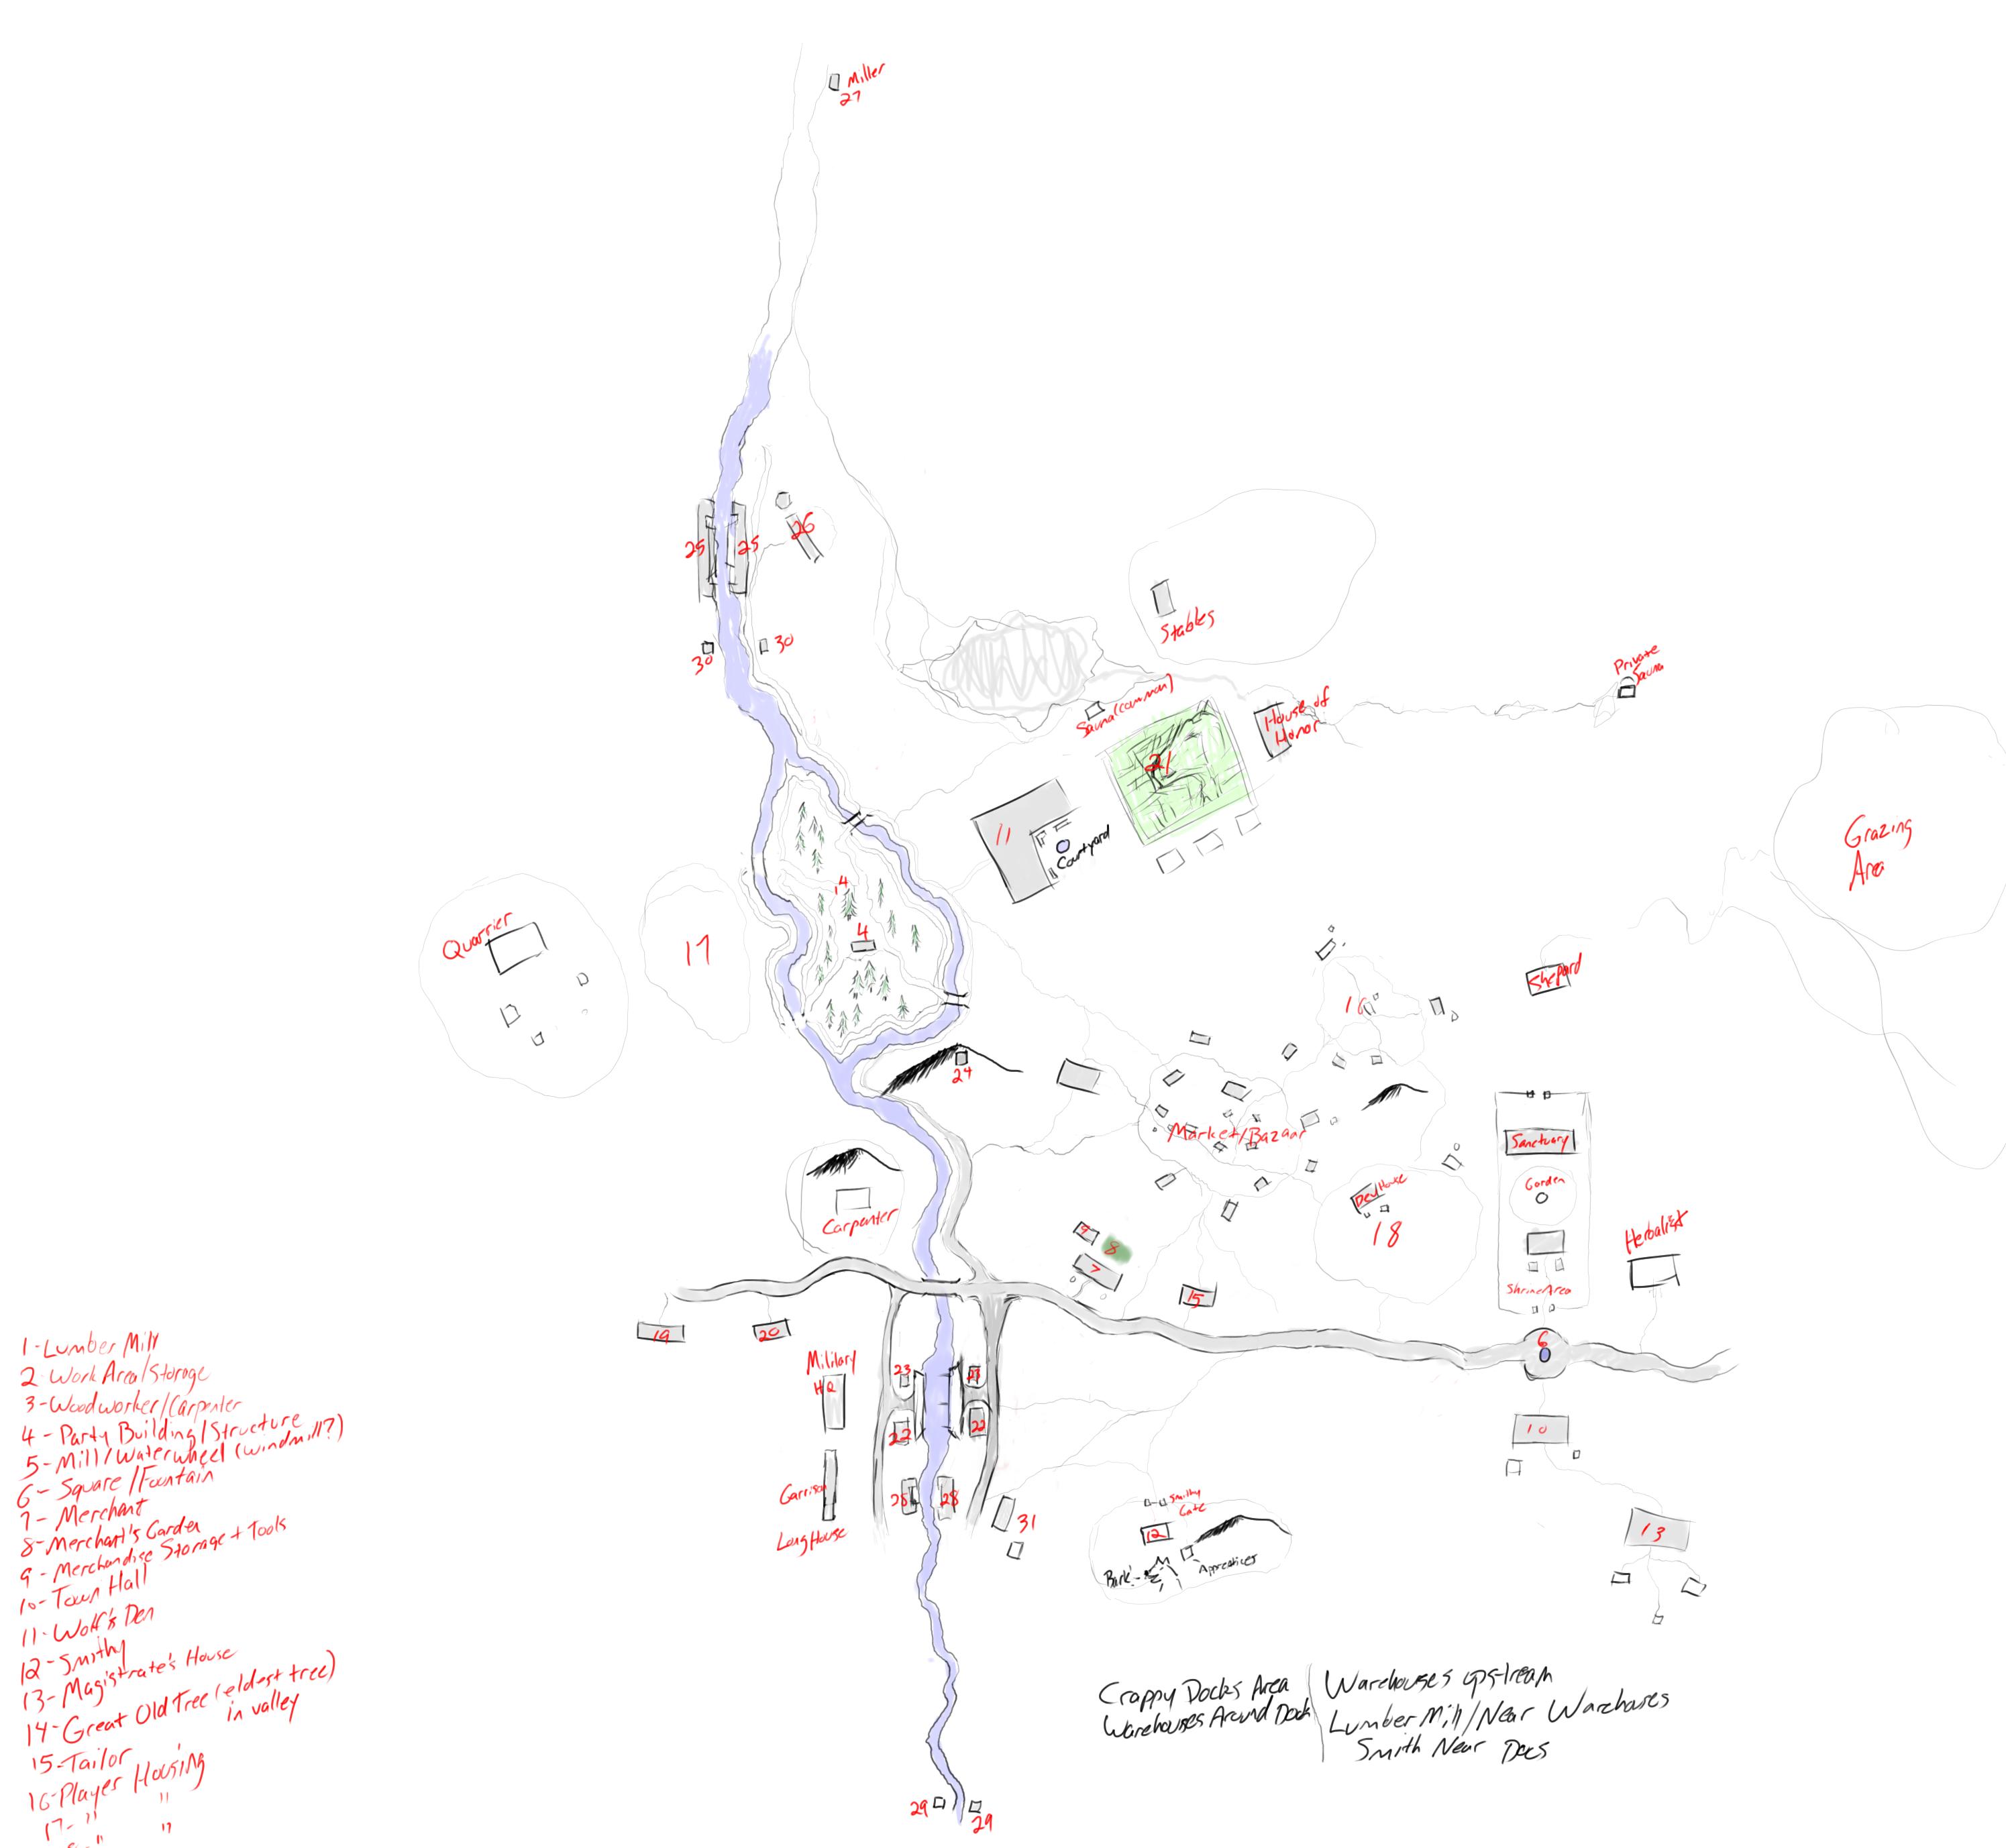 Miller
27
26
25
25
Stables
30
30
Private
Sauna
Sauna (common)
House of
Honor
21
11
Courtyard
Grazing
Area
14
4
17
Quarrier
Shepard
16
24
Market/Bazaar
Sanctuary
Garden
Dev House
18
Carpenter
9
8
7
Herbalist
Shrine Area
15
19
20
6
Military
HQ
23
22
22
10
Garrison
28
28
LongHouse
31
Smithy
Gate
12
Apprentices
Bark!
13
1-Lumber Mill
2 Work Area/Storage
3-Woodworker/Carpenter
4 - Party Building/Structure
5-Mill/Waterwheel (windmill?)
6- Square/Fountain
7- Merchant
8-Merchant's Garden
9- Merchandise Storage + Tools
10-Town Hall
11-Wolf's Den
12-Smithy
13-Magistrate's House
14-Great Old Tree (eldest tree)
in valley
15-Tailor
16-Player Housing
17- " "
" "
Crappy Docks Area
Warehouses Around Dock
Warehouses upstream
Lumber Mill/Near Warehouses
Smith Near Docs
29
29